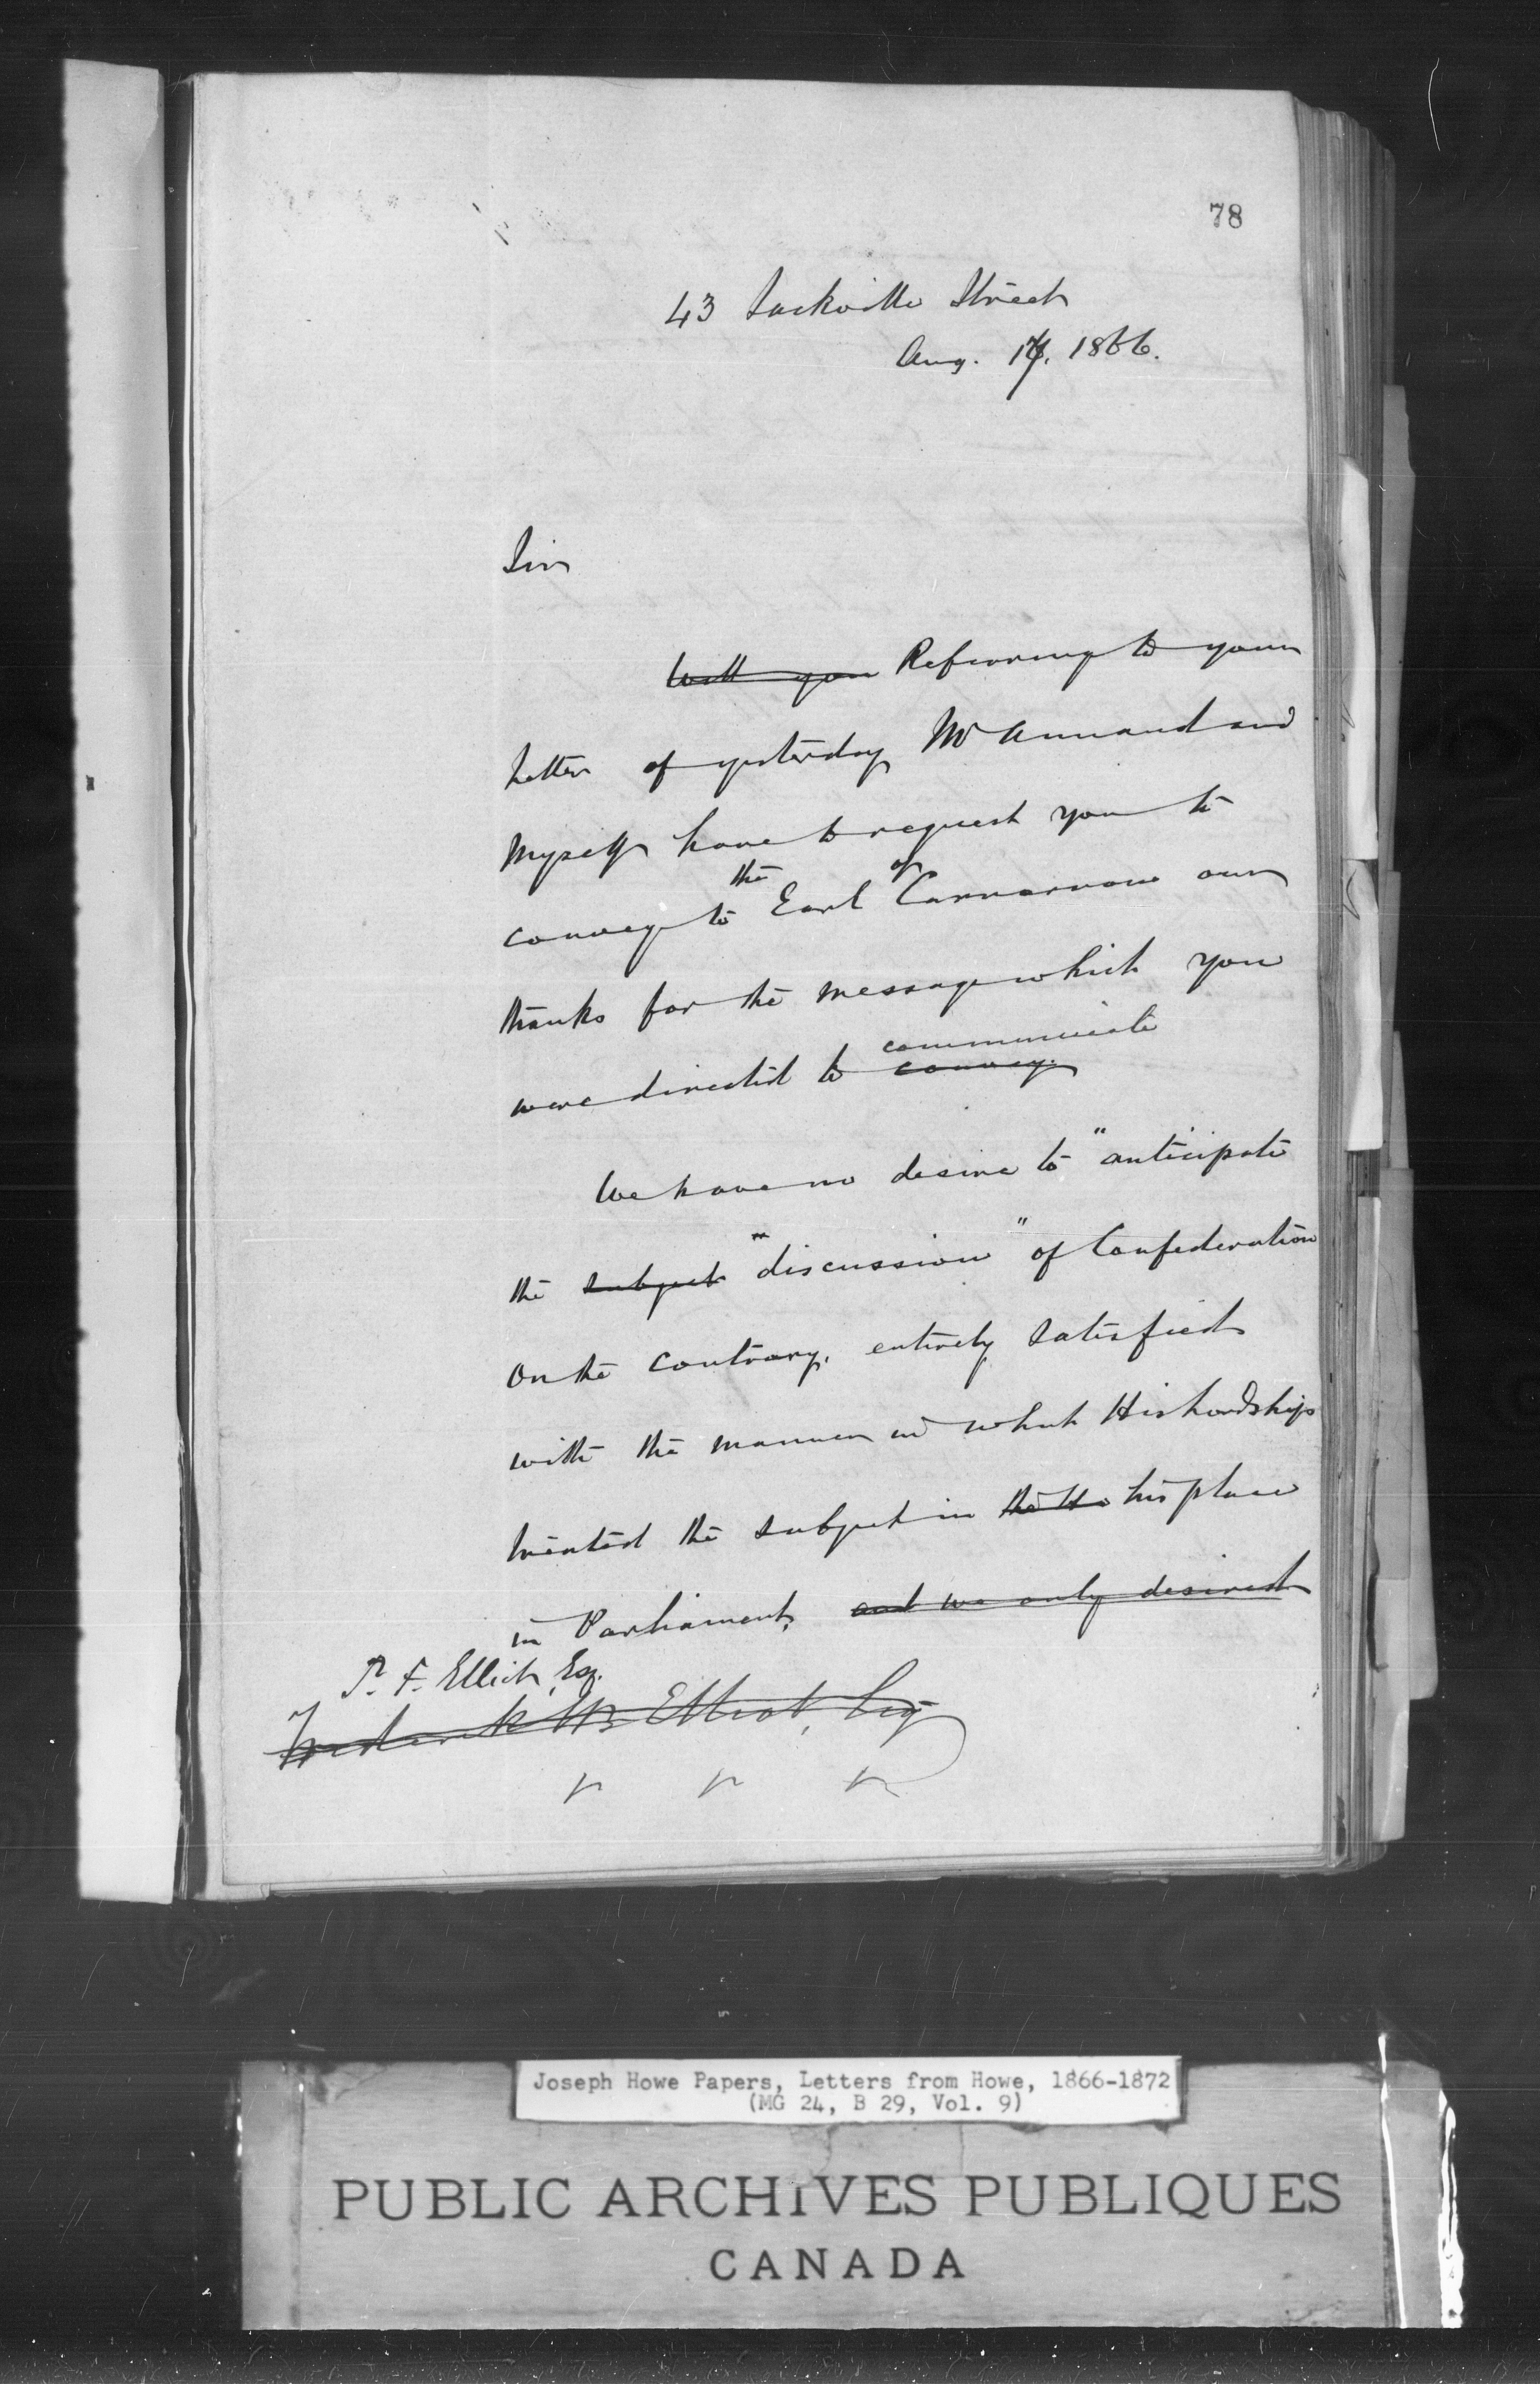 78
43 Sackville Street
Aug. 17. 1866.
Sir
Will you Referring to your
letter of yesterday Mr Annand and
Myself have to request you to
convey to the Earl of Carnarvon our
thanks for the message which you
were directed to convey. communicate
We have no desire to "anticipate
the subject "discussion" of Confederation
On the contrary, entirely satisfied
with the manner in which His Lordship
treated the subject in the Ho his place
in Parliament, and we only desired
T. F. Elliot, Esq.
Frederick Elliot, Esq
Joseph Howe Papers, Letters from Howe, 1866-1872
(MG 24, B 29, Vol. 9)
PUBLIC ARCHIVES PUBLIQUES
CANADA